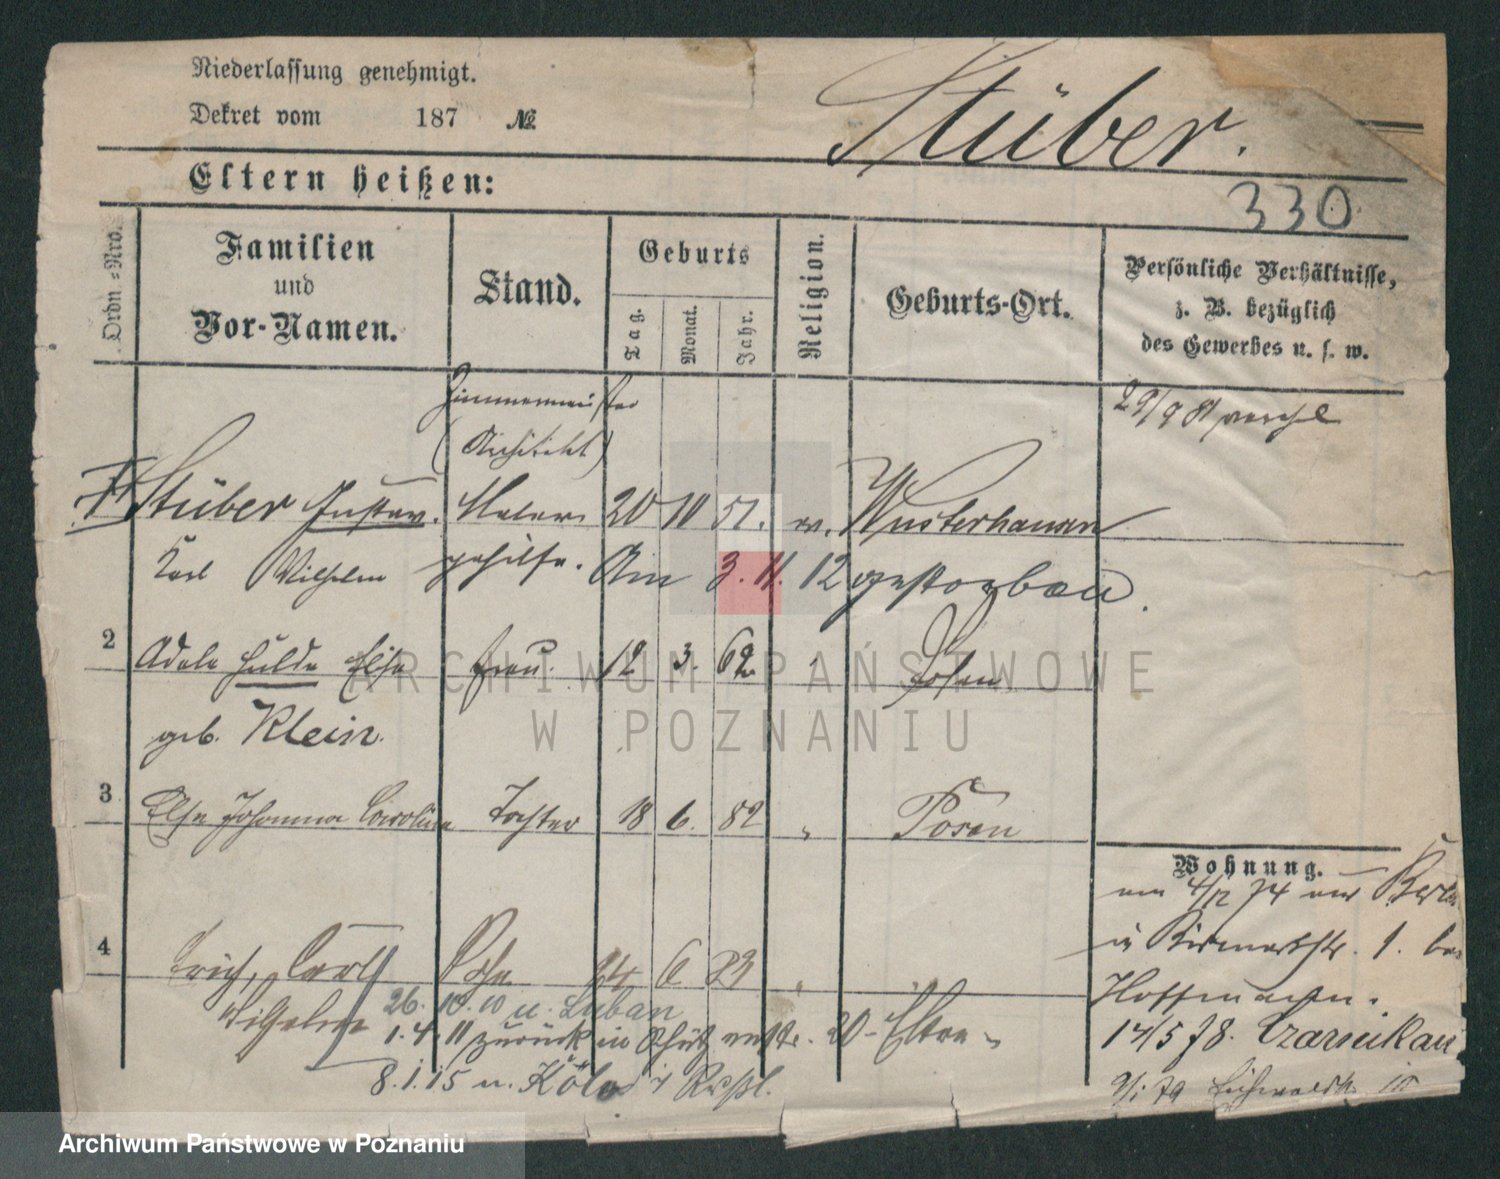 Niederlassung genehmigt.
Dekret vom 187 №
Stüber.
Eltern heißen:
330
Ordn.-Nro.
Familien
und
Vor-Namen.
Stand.
Geburts
Tag.
Monat.
Jahr.
Religion.
Geburts-Ort.
Persönliche Verhältnisse,
z. B. bezüglich
des Gewerbes u. s. w.
Zimmermeister
(Architekt)
29/9 81
Stüber Gustav. Maler 20 10 51. ev. Wusterhausen
Karl Wilhelm gehilfe. Am 3. 11. 12 gestorben.
2 Adele Hulda Elise Frau. 12 3. 62 Posen
geb. Klein.
3 Else Johanna Caroline Tochter 18 6. 82 " Posen
Wohnung.
4/12 74 aus
in Bismarckstr. 1. bei
Hoffmann.
4 Erich, Carl Sohn 24 6 23 "
Wilhelm 26. 10. 10 n. Luban
1. 4. 11 zurück in Schützenstr. 20 - Eltern
14/5 78. Czarnikau
8. 1. 15 n. Köln
9/1 79
ARCHIWUM PAŃSTWOWE
W POZNANIU
Archiwum Państwowe w Poznaniu